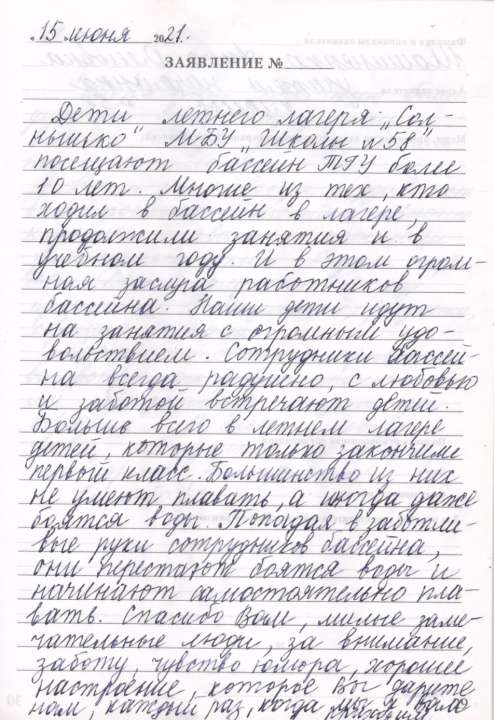 "15" июня 2021.
ЗАЯВЛЕНИЕ №
Дети летнего лагеря „Сол-
нышко" МБУ „Школы №58"
посещают бассейн ТГУ более
10 лет. Многие из тех, кто
ходил в бассейн в лагере,
продолжили занятия и в
учебном году. И в этом огром-
ная заслуга работников
бассейна. Наши дети идут
на занятия с огромным удо-
вольствием. Сотрудники бассей-
на всегда радушно, с любовью
и заботой встречают детей.
Больше всего в летнем лагере
детей, которые только закончили
первый класс. Большинство из них
не умеют плавать, а иногда даже
боятся воды. Попадая в заботли-
вые руки сотрудников бассейна,
они перестают боятся воды и
начинают самостоятельно пла-
вать. Спасибо Вам, милые заме-
чательные люди, за внимание,
заботу, чувство юмора, хорошее
настроение, которое Вы дарите
нам, каждый раз, когда мы к Вам
приходим